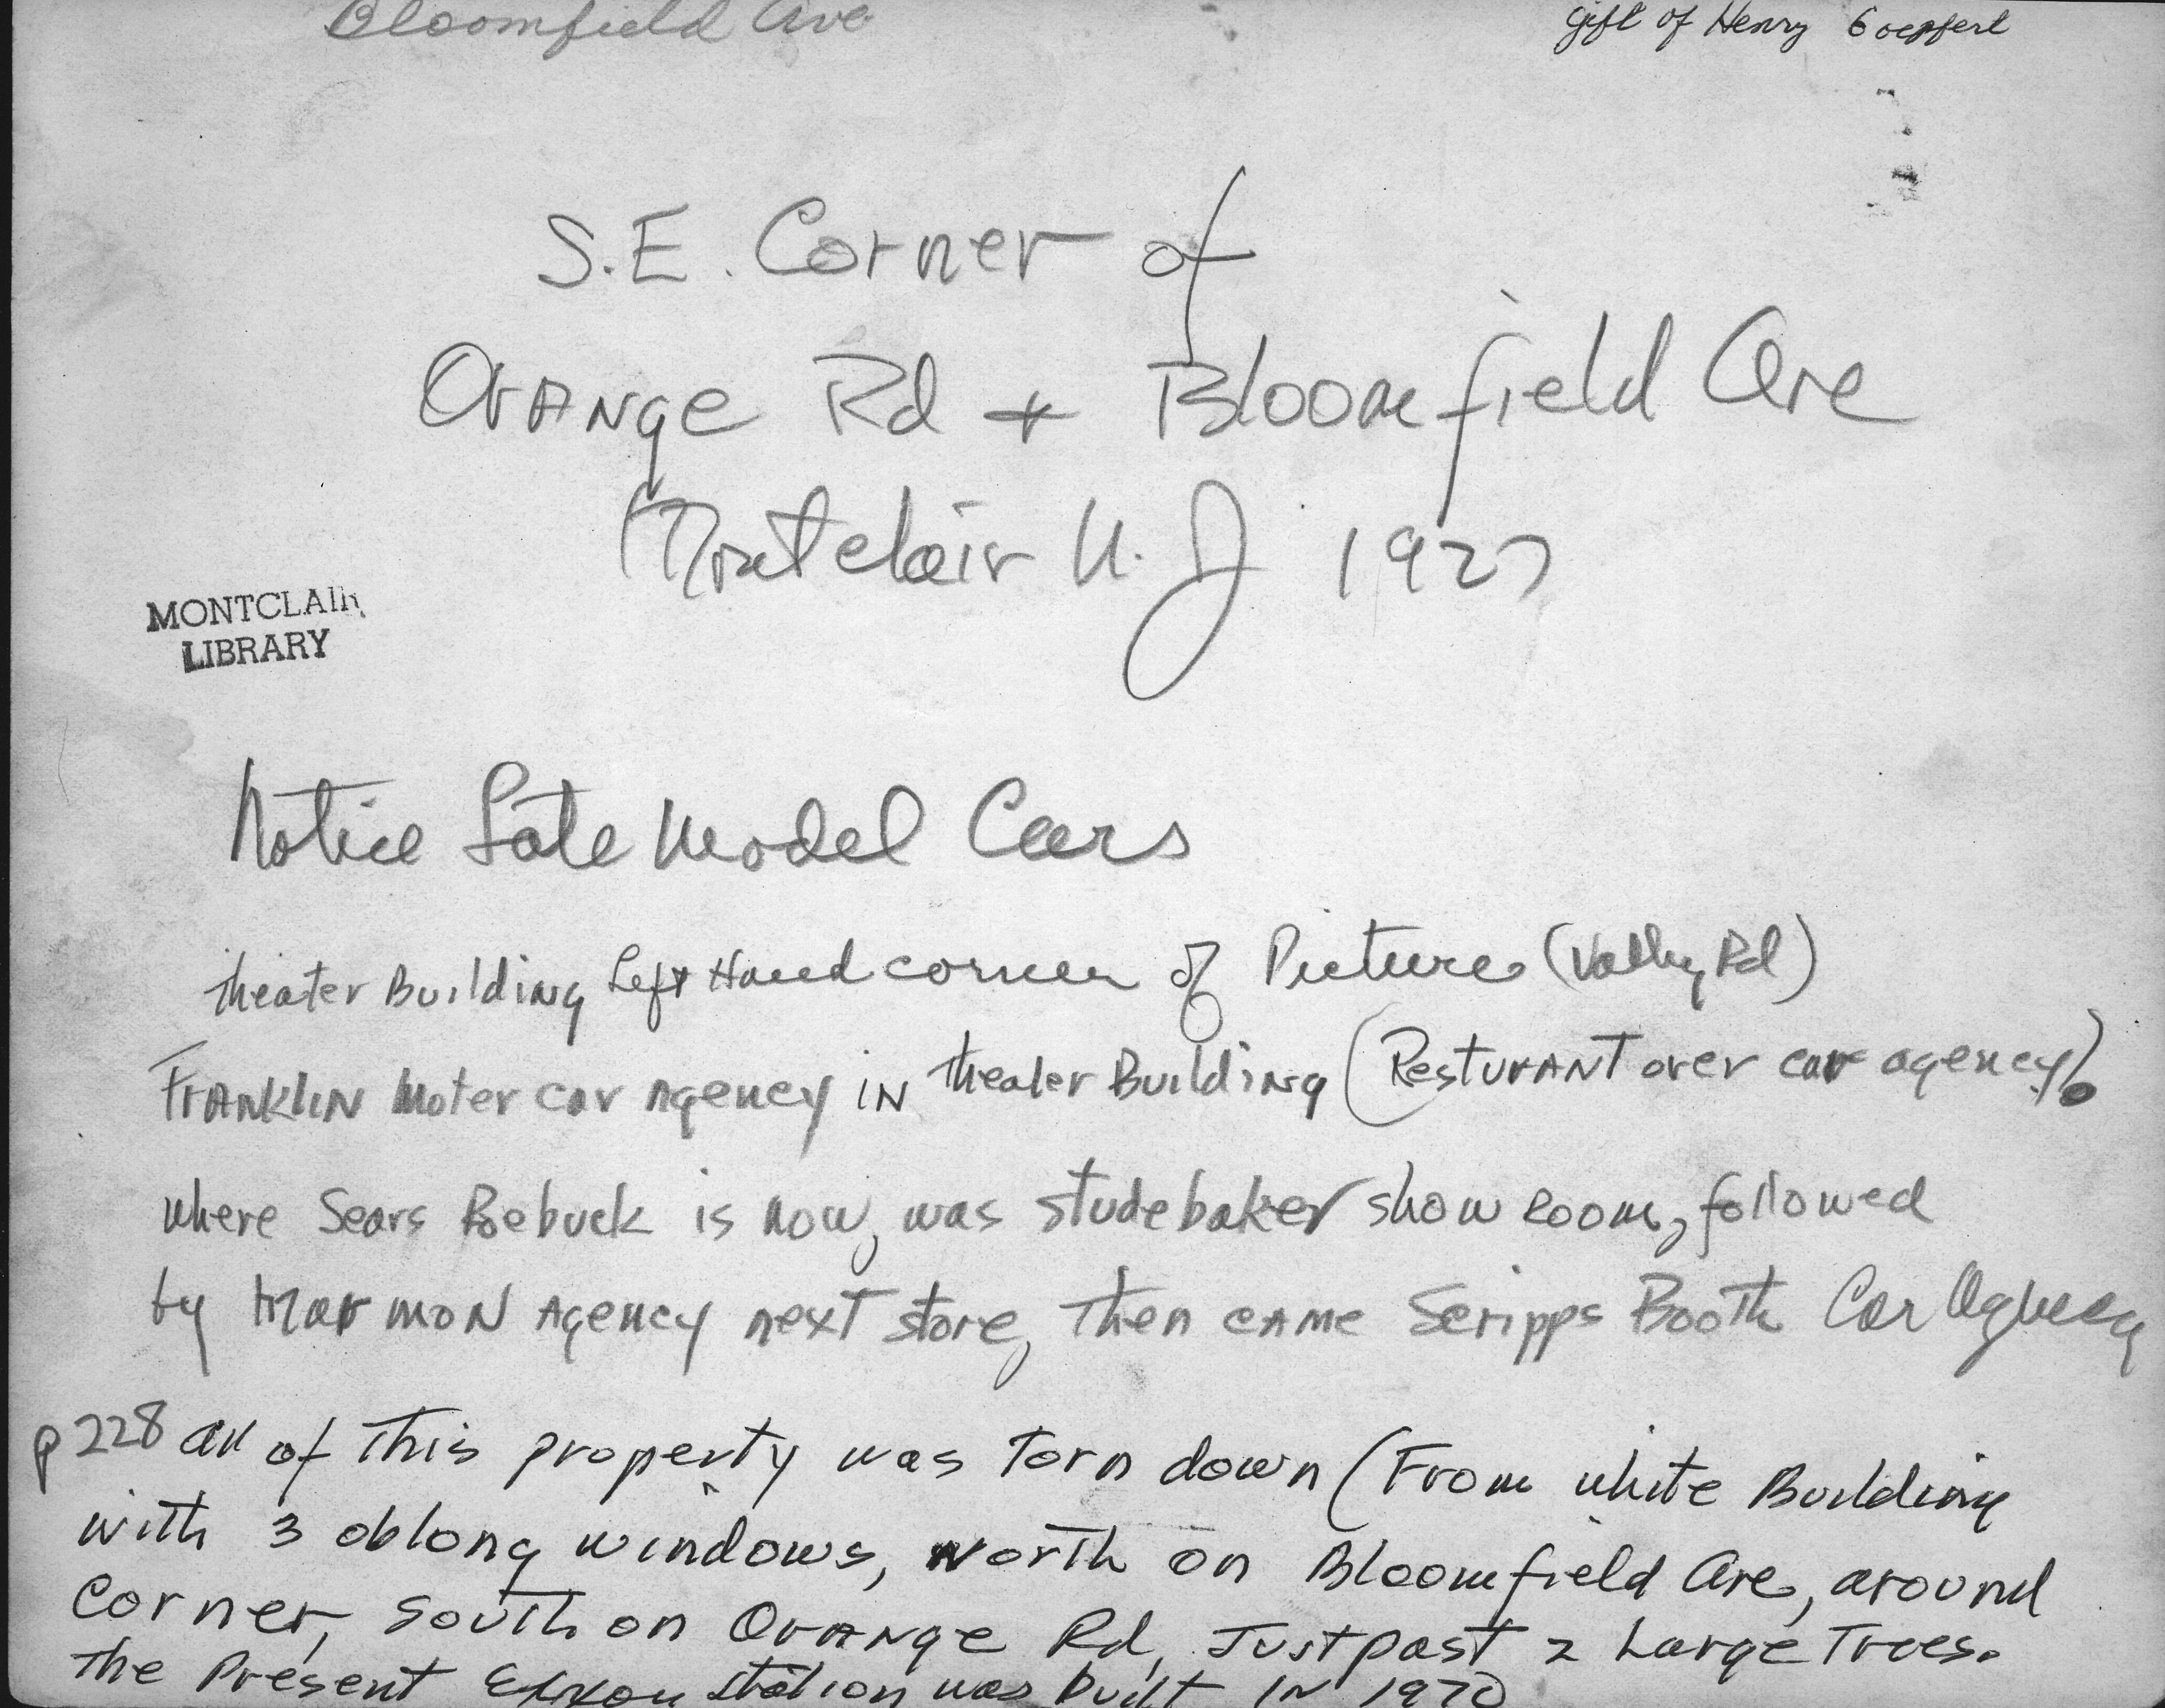 Bloomfield Ave
gift of Henry Goepfert
S.E. Corner of
Orange Rd + Bloomfield Ave
Montclair N. J 1927
MONTCLAIR
LIBRARY
Notice Late Model Cars
Theater Building Left Hand corner of Picture (Valley Rd)
Franklin Moter car Agency in Theater Building (Resturant over car agency).
where Sears Roebuck is now, was Studebaker show room, followed
by Marmon Agency next store, Then came Scripps Booth Car Agency
p 228 all of This property was Torn down (From white Building
with 3 oblong windows, North on Bloomfield Ave, around
corner, South on Orange Rd, Just past 2 Large Trees.
The Present Exxon Station was built in 1970